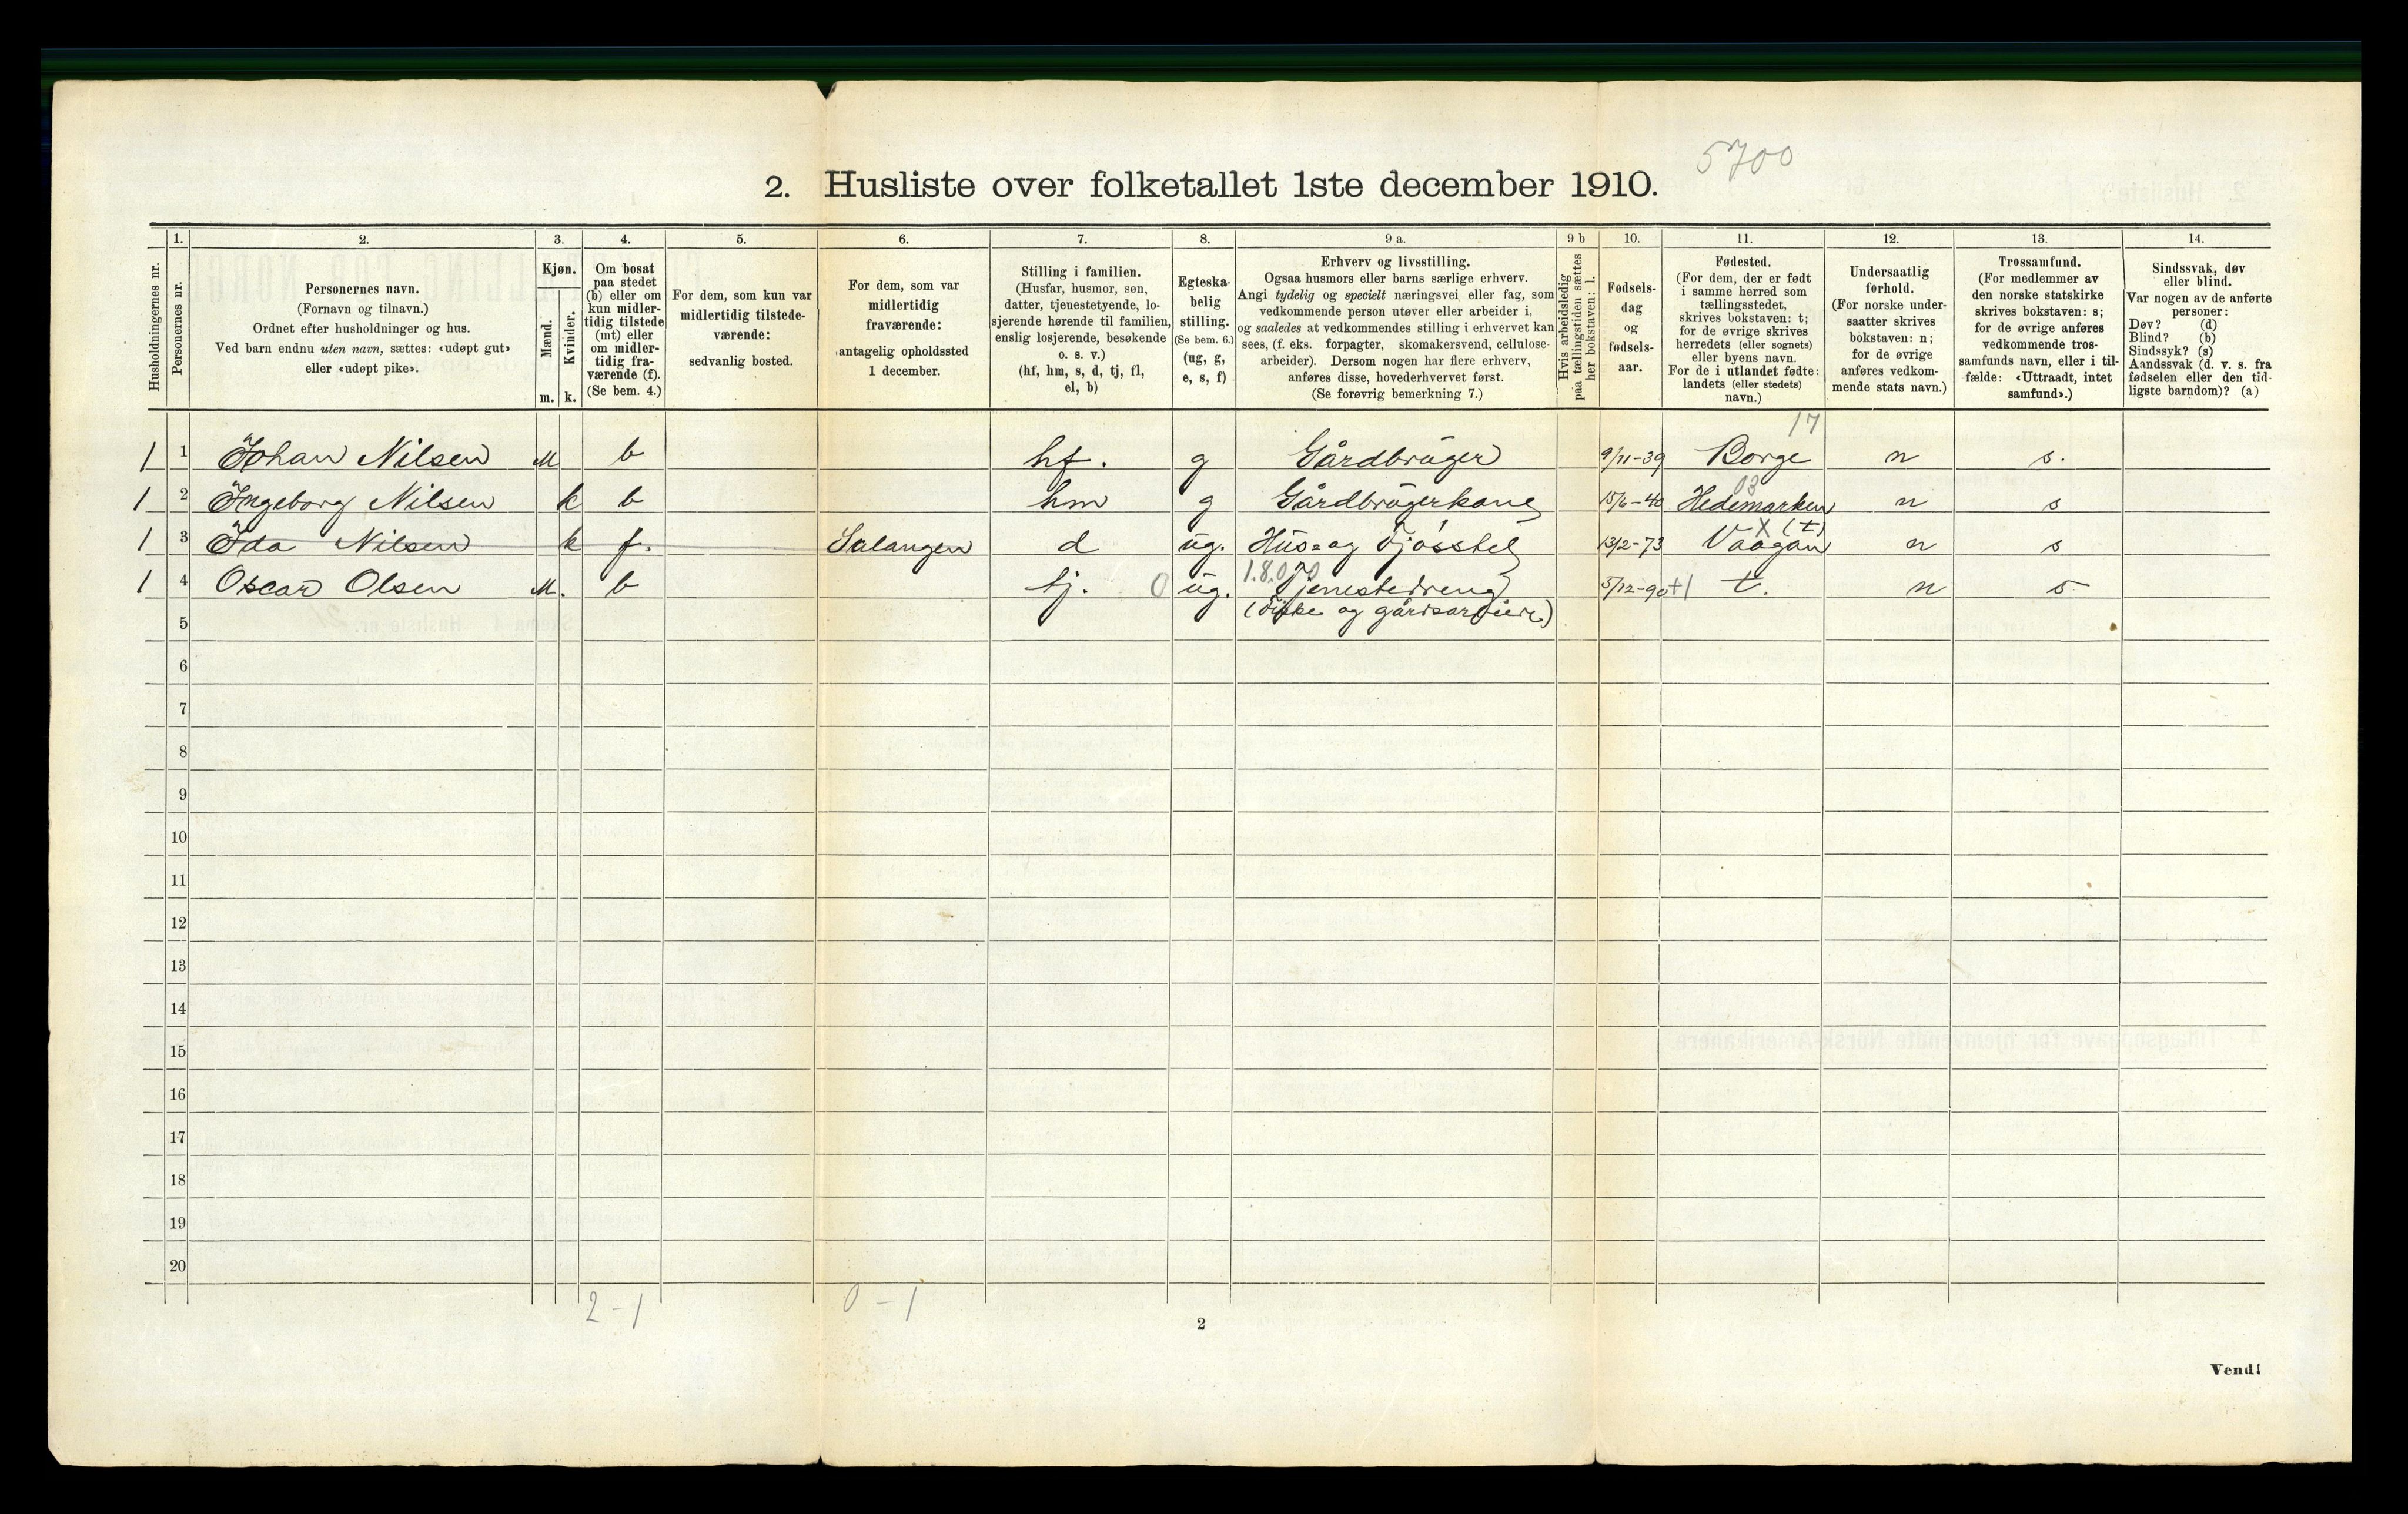 5700
2. Husliste over folketallet 1ste december 1910.
Husholdningernes nr.
1.
Personernes nr.
2.
Personernes navn.
(Fornavn og tilnavn.)
Ordnet efter husholdninger og hus.
Ved barn endnu uten navn, sættes: «udøpt gut»
eller «udøpt pike».
3.
Kjøn.
Mænd.
Kvinder.
m. k.
4.
Om bosat
paa stedet
(b) eller om
kun midler-
tidig tilstede
(mt) eller
om midler-
tidig fra-
værende (f).
(Se bem. 4.)
5.
For dem, som kun var
midlertidig tilstede-
værende:
sedvanlig bosted.
6.
For dem, som var
midlertidig
fraværende:
antagelig opholdssted
1 december.
7.
Stilling i familien.
(Husfar, husmor, søn,
datter, tjenestetyende, lo-
sjerende hørende til familien,
enslig losjerende, besøkende
o. s. v.)
(hf, hm, s, d, tj, fl,
el, b)
8.
Egteska-
belig
stilling.
(Se bem. 6.)
(ug, g,
e, s, f)
9 a.
Erhverv og livsstilling.
Ogsaa husmors eller barns særlige erhverv.
Angi tydelig og specielt næringsvei eller fag, som
vedkommende person utøver eller arbeider i,
og saaledes at vedkommendes stilling i erhvervet kan
sees, (f. eks. forpagter, skomakersvend, cellulose-
arbeider). Dersom nogen har flere erhverv,
anføres disse, hovederhvervet først.
(Se forøvrig bemerkning 7.)
9 b
Hvis arbeidsledig
paa tællingstiden sættes
her bokstaven: l.
10.
Fødsels-
dag
og
fødsels-
aar.
11.
Fødested.
(For dem, der er født
i samme herred som
tællingsstedet,
skrives bokstaven: t;
for de øvrige skrives
herredets (eller sognets)
eller byens navn.
For de i utlandet fødte:
landets (eller stedets)
navn.)
12.
Undersaatlig
forhold.
(For norske under-
saatter skrives
bokstaven: n;
for de øvrige
anføres vedkom-
mende stats navn.)
13.
Trossamfund.
(For medlemmer av
den norske statskirke
skrives bokstaven: s;
for de øvrige anføres
vedkommende tros-
samfunds navn, eller i til-
fælde: «Uttraadt, intet
samfund».)
14.
Sindssvak, døv
eller blind.
Var nogen av de anførte
personer:
Døv? (d)
Blind? (b)
Sindssyk? (s)
Aandssvak (d. v. s. fra
fødselen eller den tid-
ligste barndom)? (a)
17
1 1 Johan Nilsen M b hf. g Gårdbrüger 9/11-39 Borge n s.
03
1 2 Ingeborg Nilsen k b hm g Gårdbrügerkone 15/6-40 Hedemarken n s
X (t)
1 3 Ida Nilsen k f. Salangen d üg. Hüs- og Fjøsstel 13/2-73 Vaagan n s
1.8.0 0
1 4 Oscar Olsen M. b tj. 0 üg. Tjenestedreng 5/12-90 +1 t. n s
5 (Fiske og gårdsarbeide)
6
7
8
9
10
11
12
13
14
15
16
17
18
19
20
2 - 1 0 - 1
2
Vend!